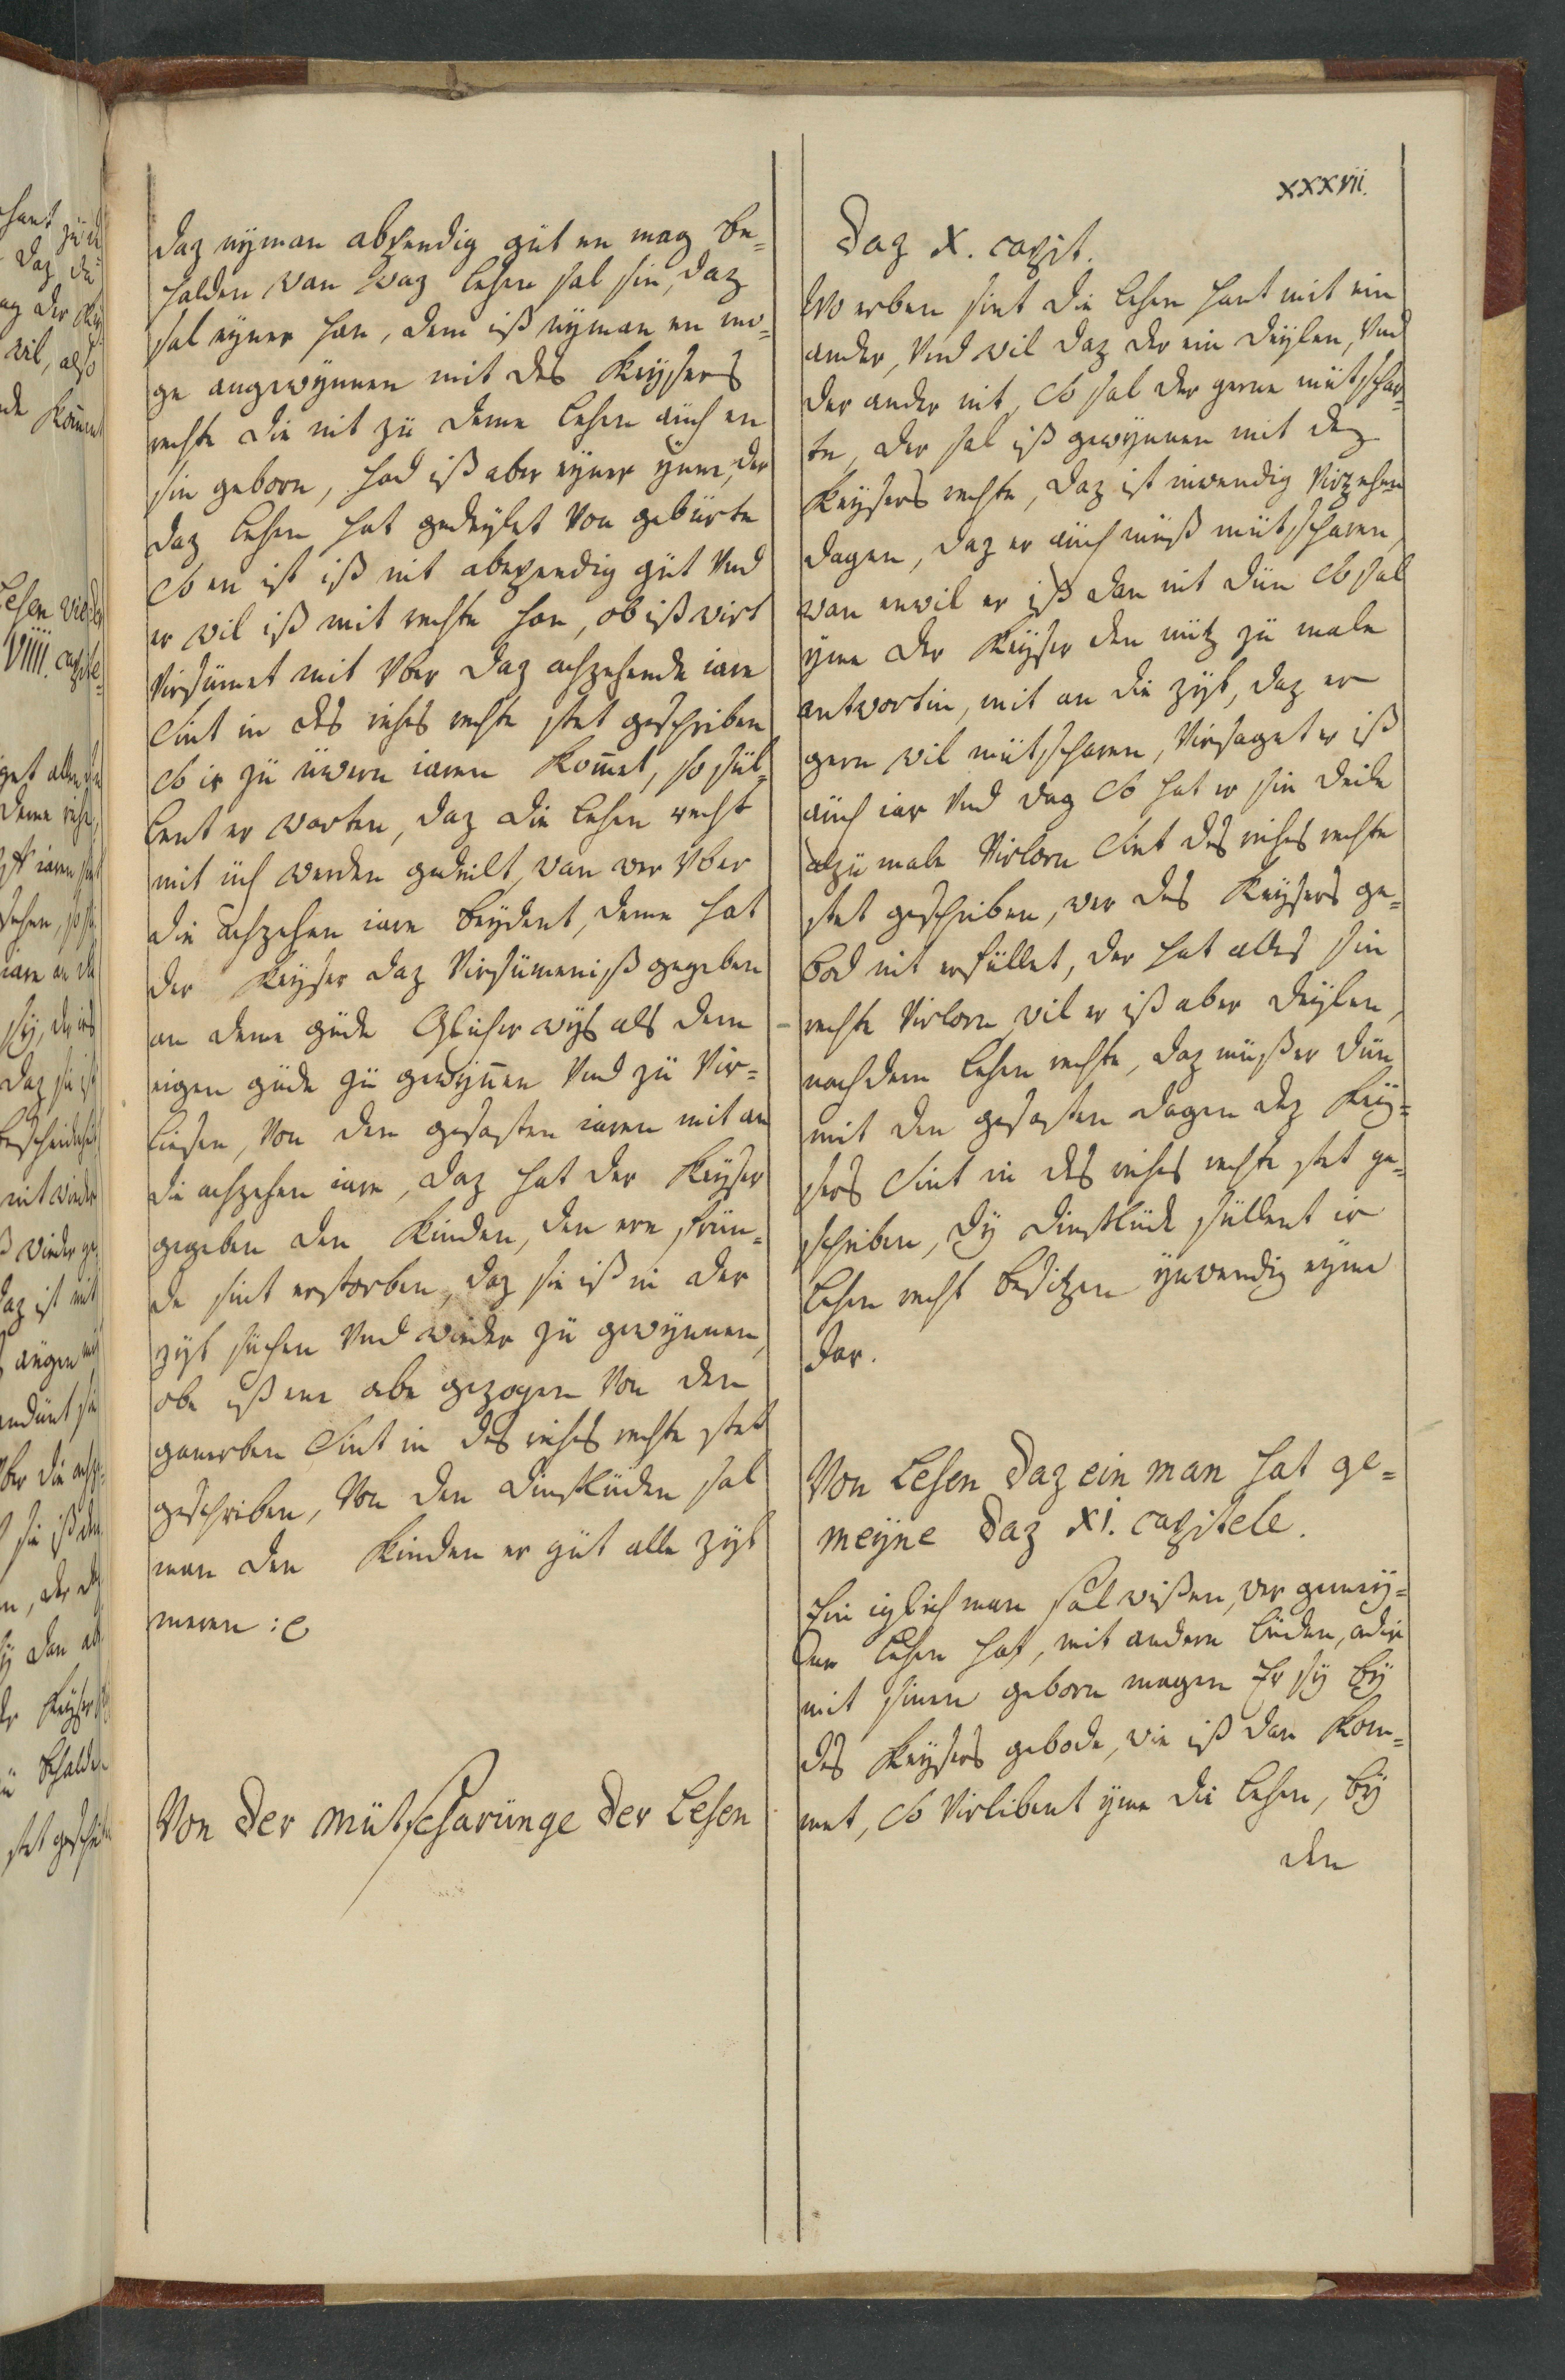 xxxvii.
daz nÿman abhendig güt en mag be=
halden van waz lehen sal sin, daz
sal eyner han, dem iß nÿman en mo=
ge angewÿnnen mit des Keÿsers
rechte die nit zü deme lehen aüch en
sin geborn, had iß aber eÿner ÿnne, der
daz lehen hat gedeÿlet von gebürte
So en ist iß nit abehendig güt Vnd
er wil iß mit rechte han, ob iß wirt
Virsümet mit Vber daz achzehende iare
Sint in des riches rechte stet geschriben
So ir zü üwern iaren kom̄et, so sül=
lent er warten, daz die lehen recht
mit üch werden gedeilt, wan wer Vber
die achzehen iare beÿdent, deme hat
der Keÿser daz Virsümeniß gegeben
an deme güde Glicher wÿs als dem
eigen güde zü gewÿn̄en Vnd zü Vir=
liesen, Von den gesasten iaren mit an
die achzehen iare, daz hat der Keÿser
gegeben den Kinden, den ere frün=
de sint erstorben, daz sie iß in der
zÿt süchen Vnd wieder zü gewÿnnen,
obe iß ene abe gezogen Von den
ganerben Sint in des riches rechte stet
geschriben, Von den dinstlüden sal
man den Kinden er güt alle zÿt
meren :
Von der mütscharünge der Lehen
Daz X. capit.
Wo erben sint die lehen hant mit ein
ander, Vnd wil daz der ein deÿlen, Vnd
der ander nit, So sal der gerne mütschar=
te, der sal iß gewÿnnen mit dez
Keÿsers rechte, daz ist inwendig Virzehen
dagen, daz er aüch müß mütscharen,
wan enwil er iß dan nit dün So sal
ÿme der Keÿser den nütz zü male
antwortin, mit an die zÿt, daz er
gern wil mütscharen, Virsaget er iß
aüch iar Vnd dag So hat er sin deile
alzü male Virlorn Sint des riches rechte
stet geschriben, wer des Keÿsers ge=
bod nit erfüllet, der hat alles sin
rechte Virlorn, wil er iß aber deÿlen,
nach dem lehen rechte, daz müß er dün
mit den gesasten dagen dez Keÿ=
sers Sint in des riches rechte stet ge=
schriben, dÿ dinstlüde süllent ir
lehen recht besitzen ÿnwendig eÿme
dar.
Von Lehen daz ein man hat ge=
meÿne daz XI. capitele.
Ein iglich man sal wißen, wer gemeÿ=
ne lehen hat, mit andern lüden, oder
mit sinen geborn magen Er sÿ bÿ
des Keÿsers gebode, wie iß dan kom=
met, So Virlibent ÿme die lehen, bÿ
den